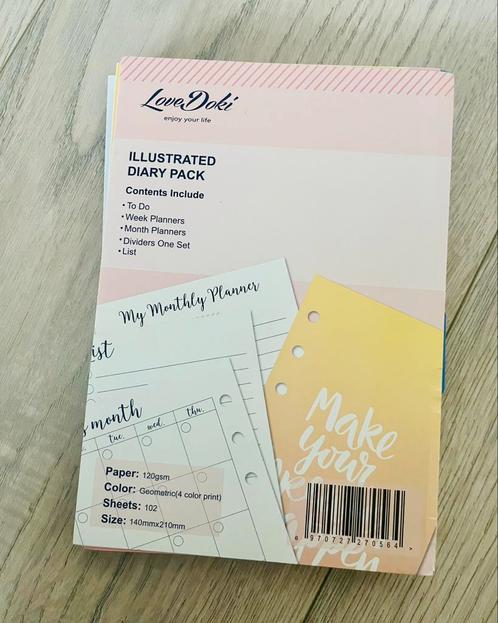 LoveDoki
enjoy your life
ILLUSTRATED
DIARY PACK
Contents Include
• To Do
• Week Planners
• Month Planners
• Dividers One Set
• List
My Monthly Planner
ist
s month
tue. wed. thu.
Make
your
ppen
Paper: 120gsm
Color: Geometric(4 color print)
Sheets: 102
Size: 140mmx210mm
6 970727 270564 >